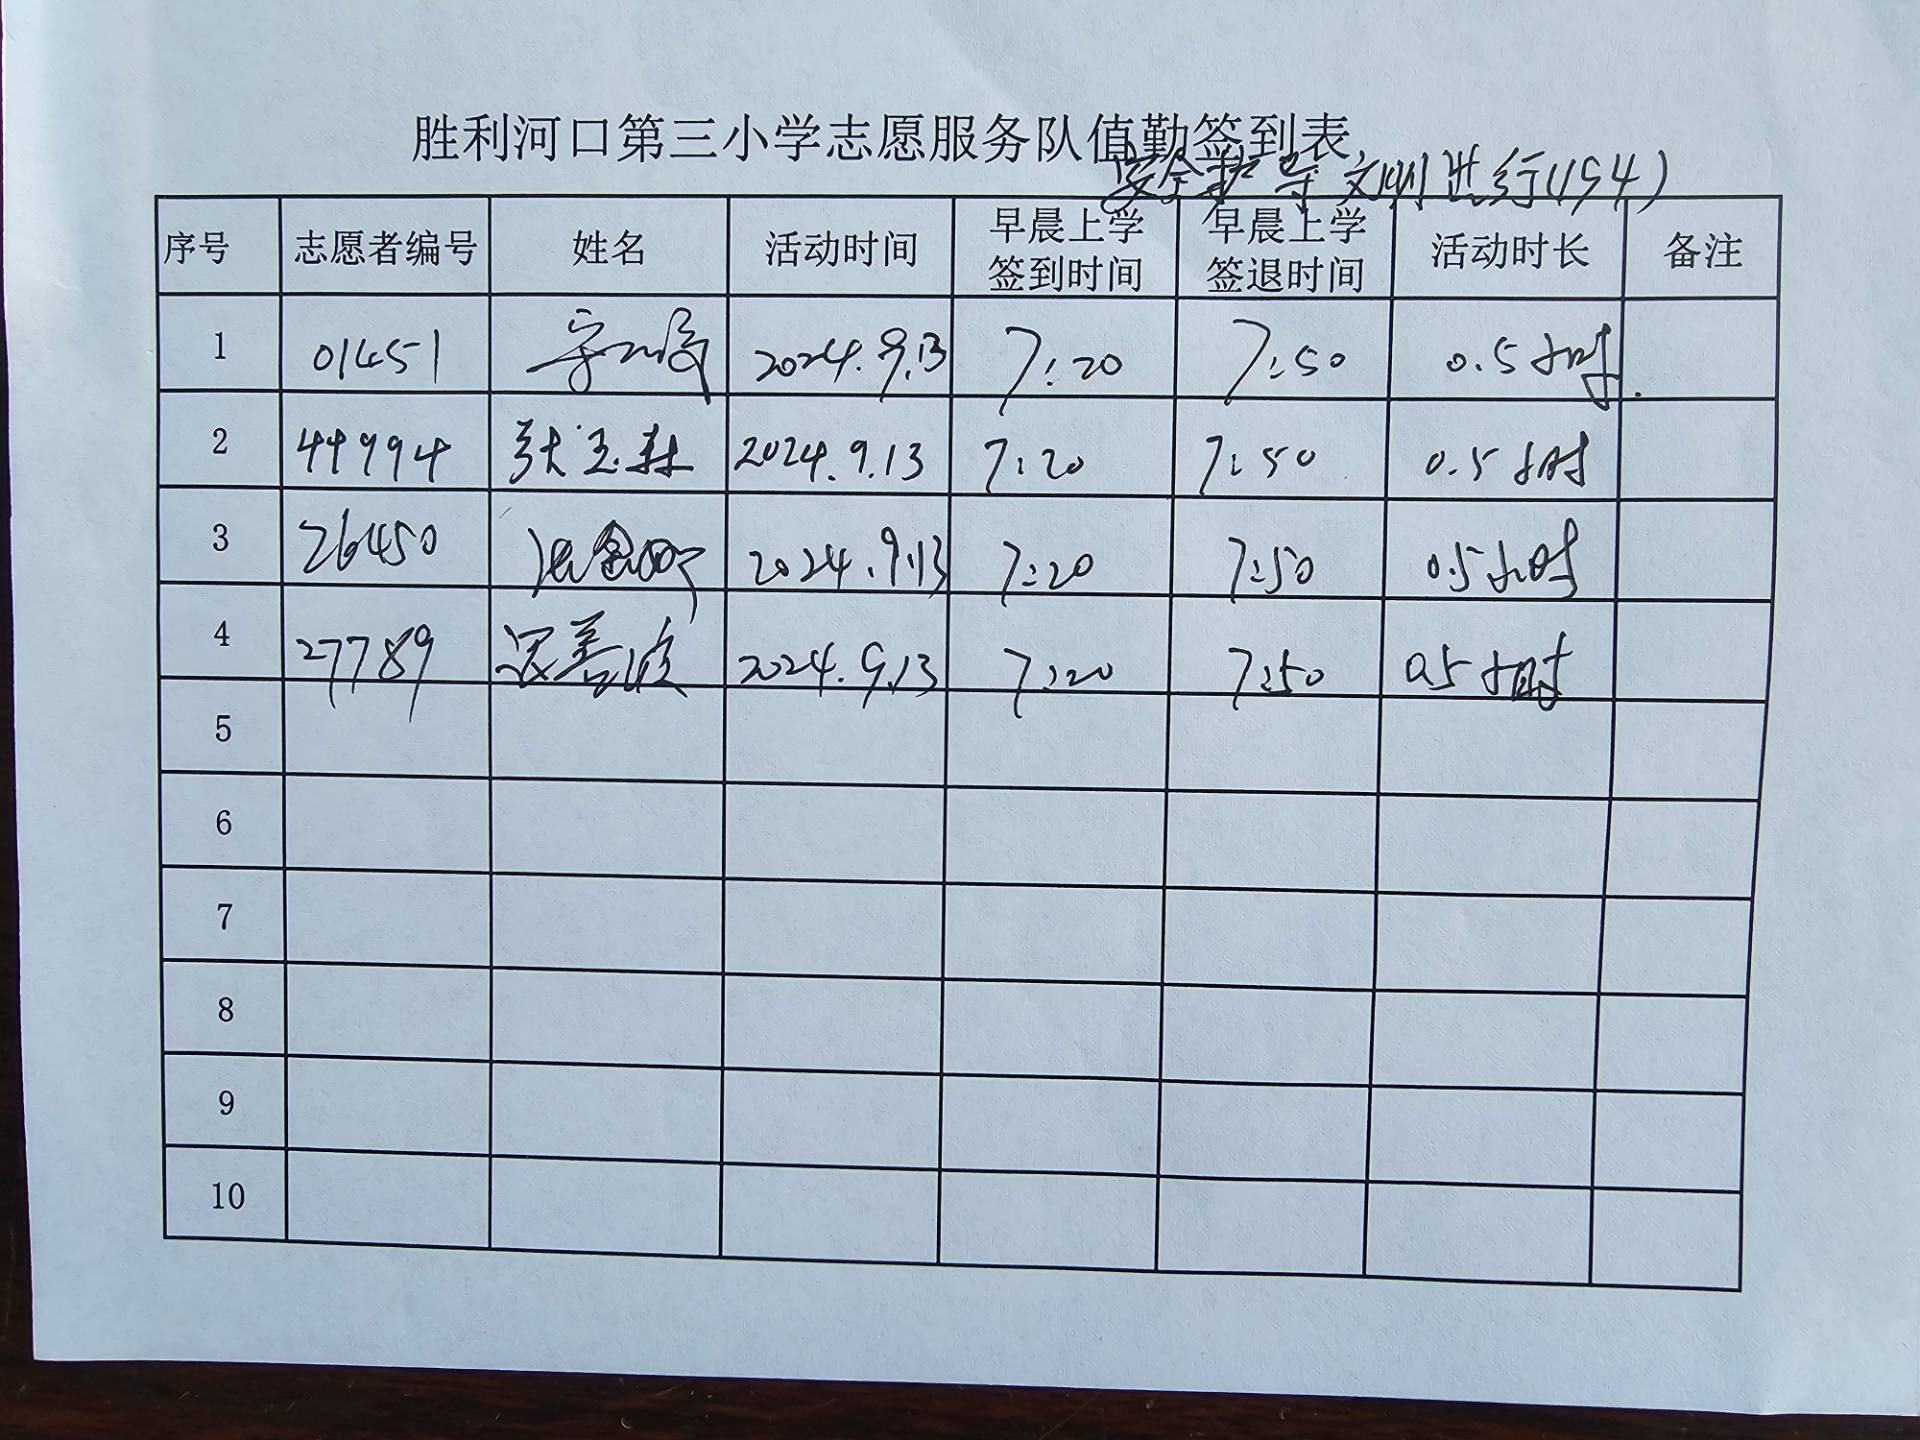 胜利河口第三小学志愿服务队值勤签到表
安全护导 文明进行(154)
序号 志愿者编号 姓名 活动时间 早晨上学签到时间 早晨上学签退时间 活动时长 备注
1 01451 2024.9.13 7:20 7:50 0.5小时
2 44994 张玉森 2024.9.13 7:20 7:50 0.5小时
3 26450 2024.9.13 7:20 7:50 0.5小时
4 27789 善波 2024.9.13 7:20 7:50 0.5小时
5
6
7
8
9
10